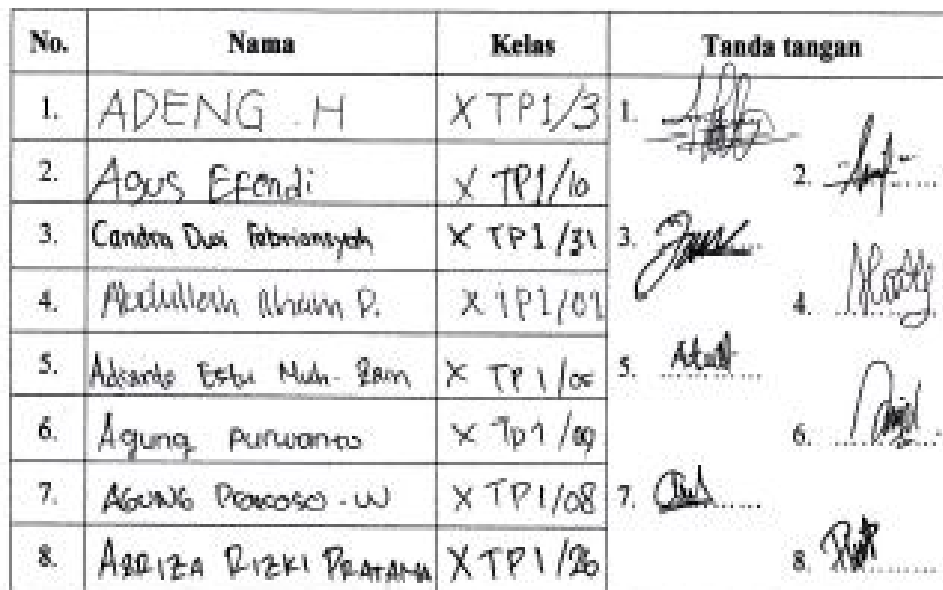 No. Nama Kelas Tanda tangan
1. ADENG . H X TP1/3 1.
2. Agus Efendi X TP1/10 2.
3. Candra Dwi Febriansyah X TP1/31 3.
4. Abdullah P. X TP1/01 4.
5. Adianto Muh. X TP1/05 5.
6. Agung purwanto X TP1/09 6.
7. AGUNG . W X TP1/08 7.
8. ARRIZA RIZKI PRATAMA X TP1/26 8.